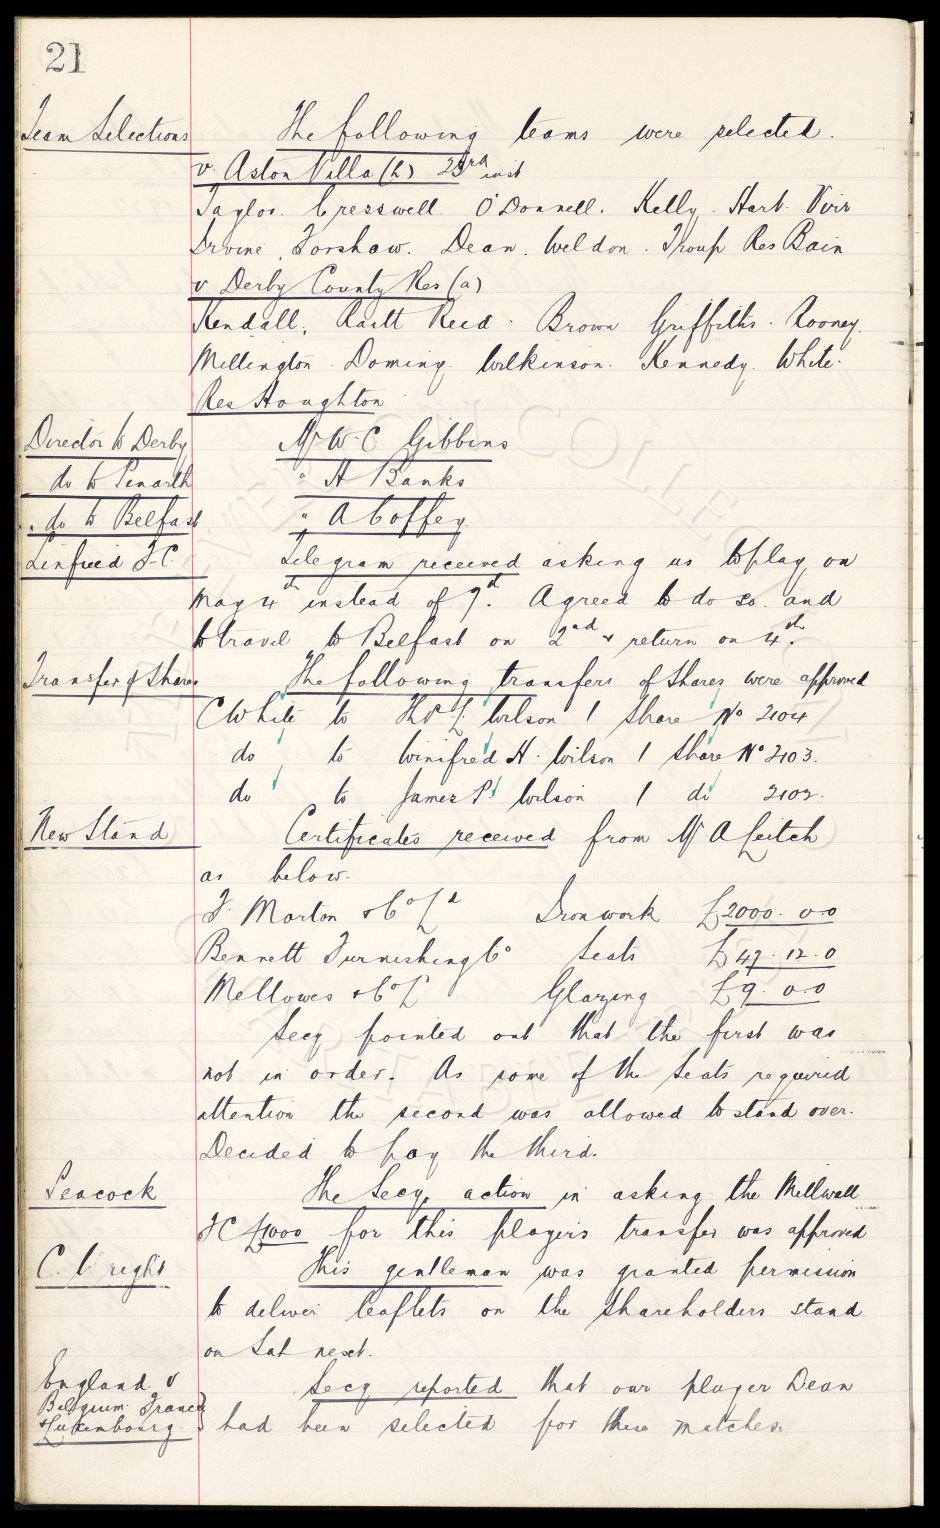 21
Team Selections The following teams were selected.
v. Aston Villa (h) 23rd inst
Taylor. Cresswell. O'Donnell. Kelly. Hart. Virr
Irvine, Forshaw. Dean. Weldon. Troup Res Bain
v Derby County Res (a)
Kendall, Raitt Reid. Brown Griffiths. Rooney.
Millington. Doming. Wilkinson. Kennedy. White.
Res Houghton
Director to Derby Mr W. C. Gibbins
do to Penarth " H Banks
" do to Belfast " A Coffey.
Linfield F.C. Telegram received asking us to play on
May 4th instead of 7th. Agreed to do so. and
to travel to Belfast on 2nd & return on 4th.
Transfer of Shares The following transfers of shares were approved
C White to Thos L. Wilson 1 Share No 2104
do to Winifred H. Wilson 1 Share No 2103.
do to James P. Wilson 1 do 2102.
New Stand Certificates received from Mr A Leitch
as below.
F. Morton & Co Ld Ironwork £2000. 0.0
Bennett Furnishing Co Seats £47. 12. 0
Mellowes & Co Ld Glazing £9. 0.0
Secy pointed out that the first was
not in order. As some of the Seats required
attention the second was allowed to stand over.
Decided to pay the third.
Peacock The Secy. action in asking the Millwall
FC £1000 for this players transfer was approved
C. Wright. This gentleman was granted permission
to deliver leaflets on the Shareholders stand
on Sat next.
England v Secy reported that our player Dean
Belgium France
& Luxembourg } had been selected for these matches.